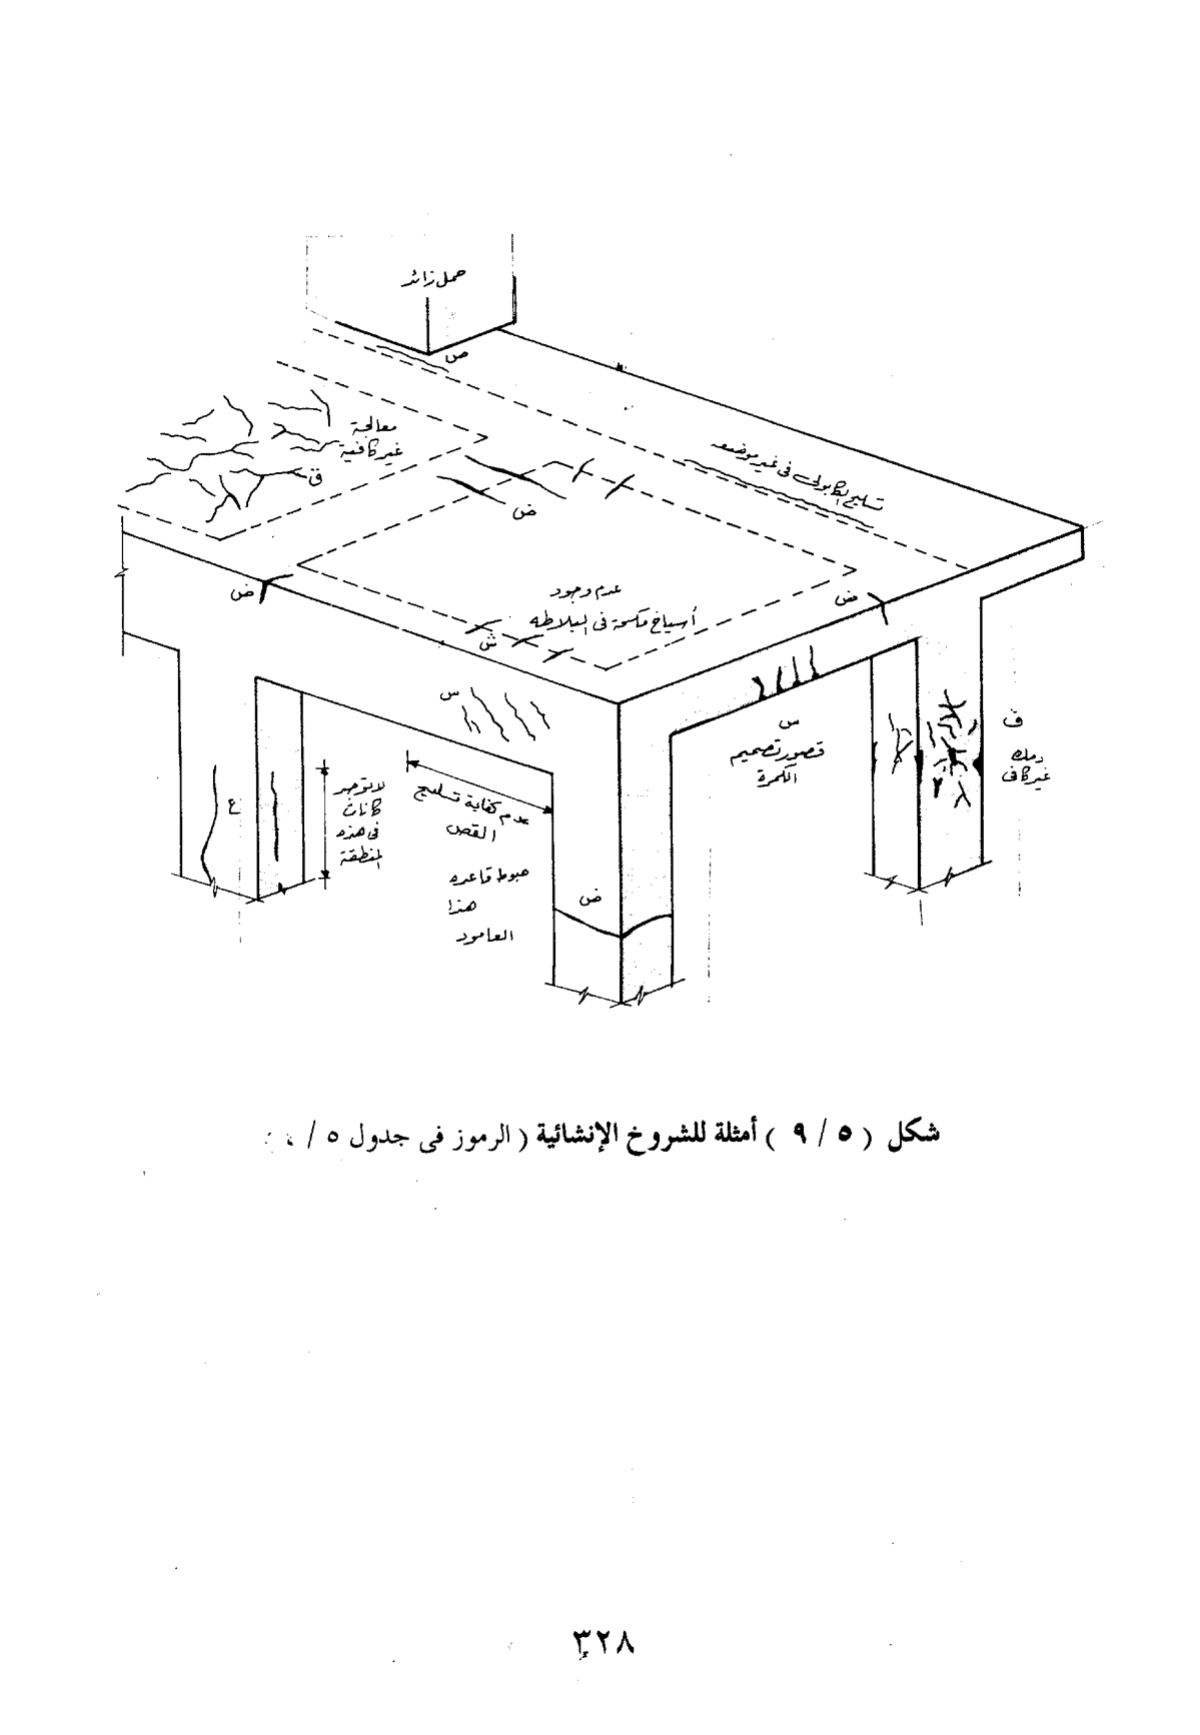 حمل زائد
ص
معالجة
غير كافية
ق
تسليح الكابولى فى غير موضعه
ض
ض
عدم وجود
أسياخ مكسحة فى البلاطه
ض
ش
س
س
قصور تصميم
الكمرة
ق
دمك
غير كافى
لا توجد
كانات
فى هذه
المنطقة
ع
عدم كفاية تسليح
القص
هبوط قاعده
هذا
العامود
ض
شكل ( ٥ / ٩ ) أمثلة للشروخ الإنشائية ( الرموز فى جدول ٥ /
٣٢٨